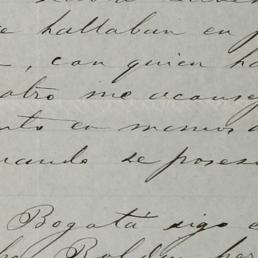 e hallaban en p
, con quien ha
otro me aconse
nto en menos d
uando se poses
Bogotá sigo e
ho Roldán par